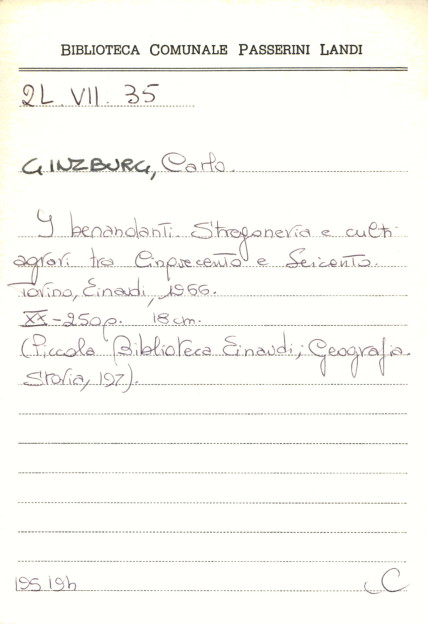 BIBLIOTECA COMUNALE PASSERINI LANDI
2L. VII. 35
GINZBURG, Carlo.
I benandanti. Stregoneria e culti
agrari tra Cinquecento e Seicento.
Torino, Einaudi, 1966.
XX-250p. 18 cm.
(Piccola Biblioteca Einaudi; Geografia.
Storia, 197).
195194
C